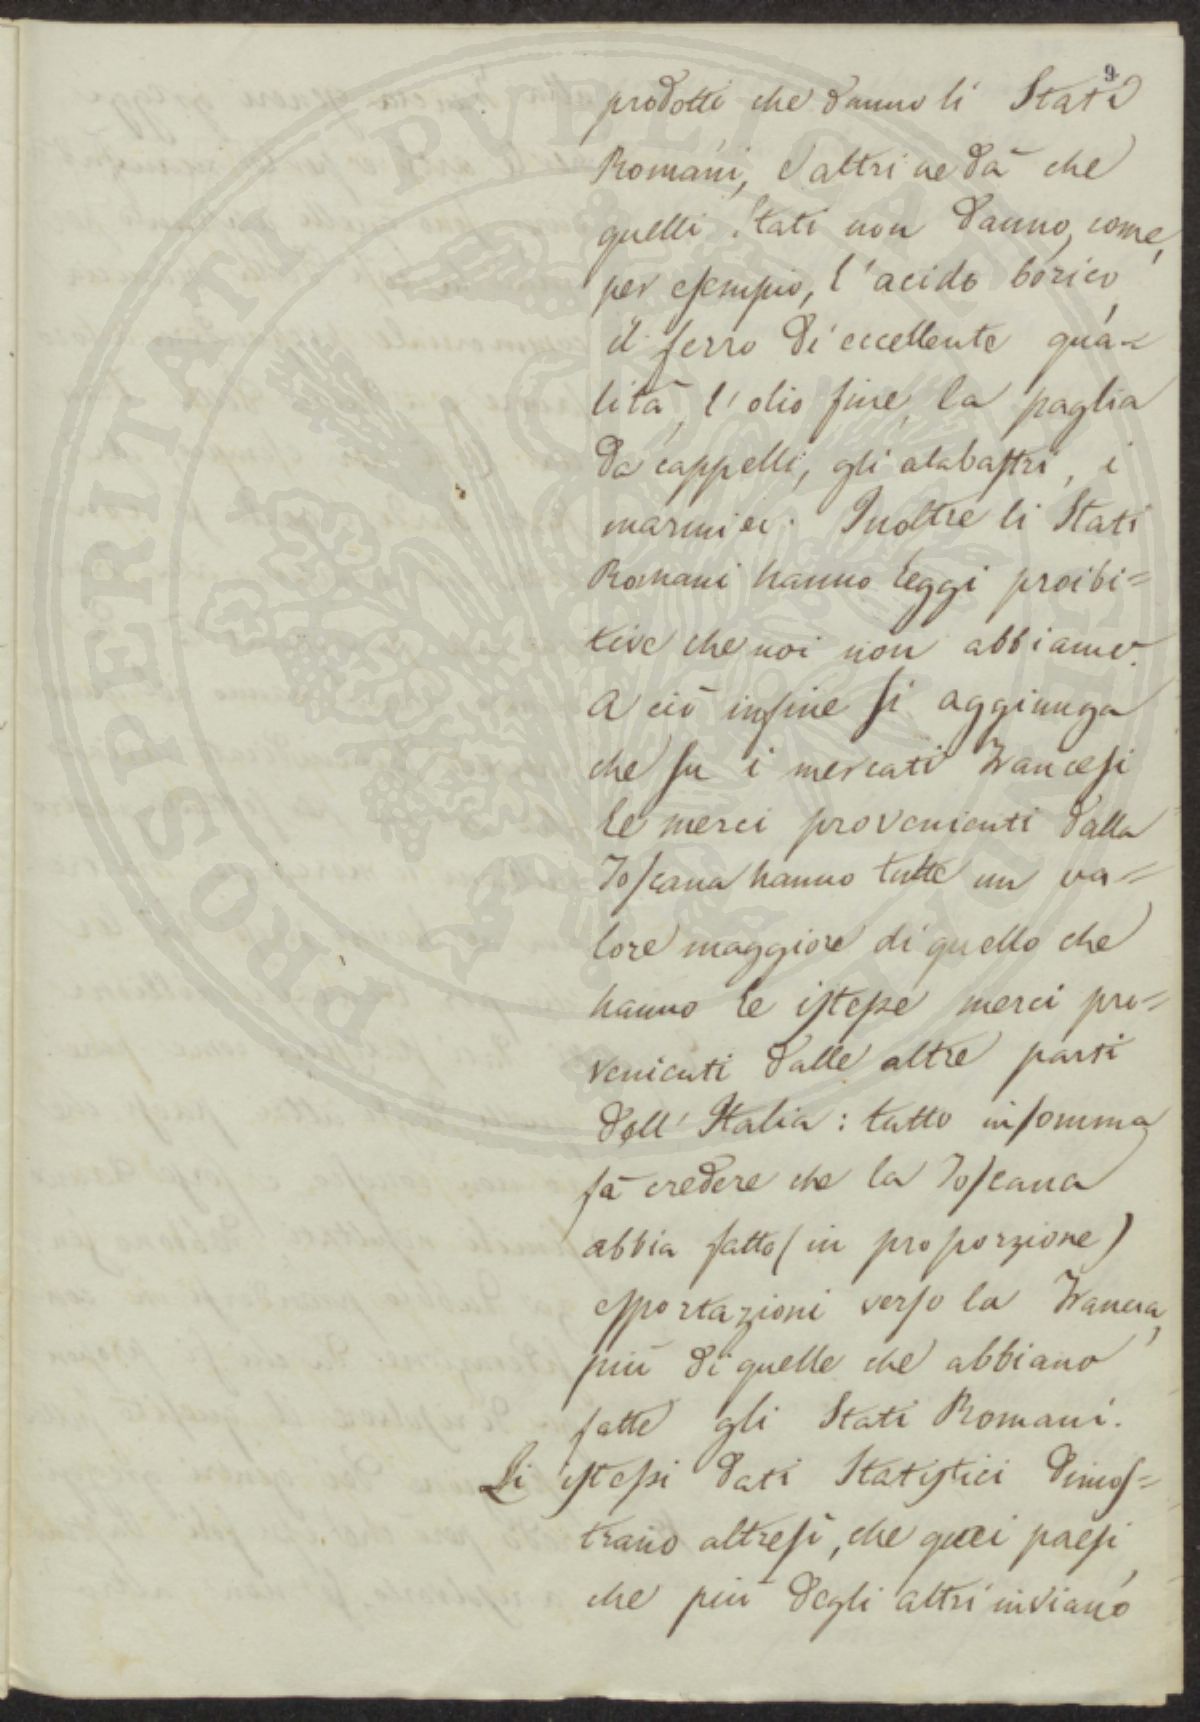 9
prodotti che danno li Stati
Romani, e altri ne dà che
quelli Stati non danno, come,
per esempio, l'acido borico,
il ferro di eccellente qua-
lità, l'olio fine, la paglia
da cappelli, gli alabastri, i
marmi ec. Inoltre li Stati
Romani hanno leggi proibi=
tive che noi non abbiamo.
A ciò infine si aggiunga
che su i mercati Francesi
le merci provenienti dalla
Toscana hanno tutte un va=
lore maggiore di quello che
hanno le istesse merci pro=
venienti dalle altre parti
dell'Italia: tutto insomma
fà credere che la Toscana
abbia fatto (in proporzione)
esportazioni verso la Francia,
più di quelle che abbiano
fatte gli Stati Romani.
Li istessi dati Statistici dimos=
trano altresì, che quei paesi,
che più degli altri inviano
PROSPERITATI PVBLICAE